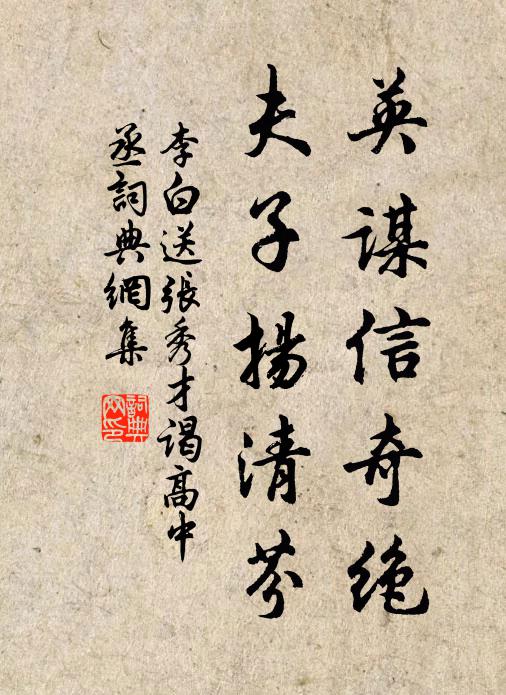 英謀信奇絶
夫子揚清芬
李白送張秀才謁高中
丞詞典網集
詞典
网印